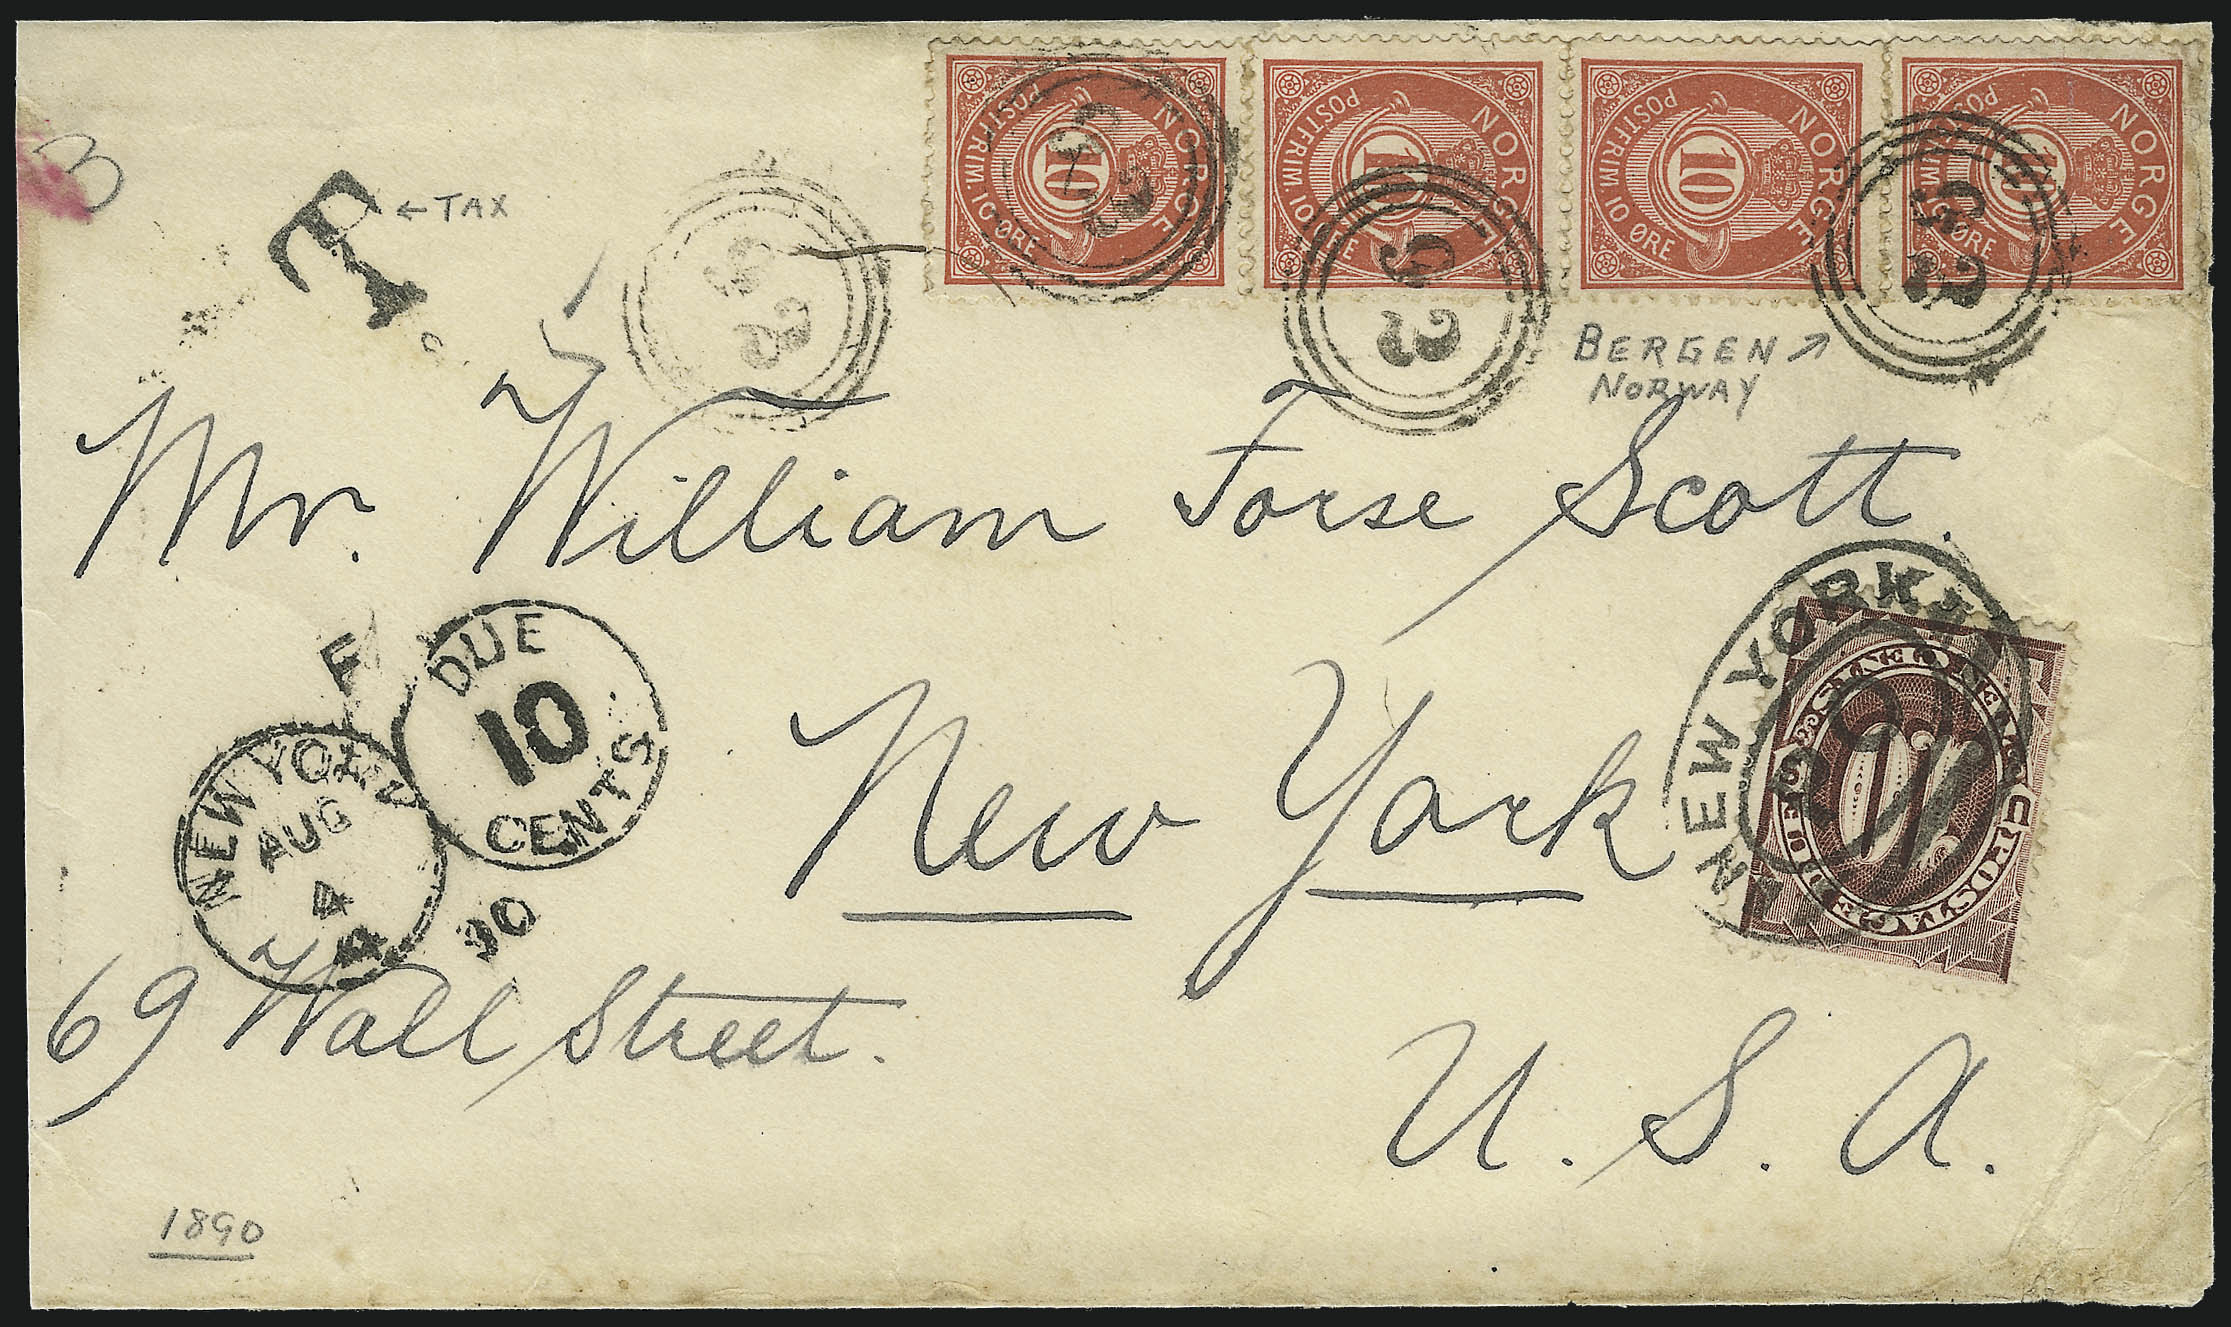 NORGE 10 POSTFRIM. 10 ØRE
NORGE 10 POSTFRIM. 10 ØRE
NORGE 10 POSTFRIM 10 ØRE
NORGE 10 POSTFRIM. 10 ØRE
3
T
← TAX
BERGEN ↗
NORWAY
Mr. William Forse Scott.
DUE
10
CENTS
NEW YORK
AUG
4
90
F
New York
NEW YORK
POSTAGE DUE
10
69 Wall Street.
U. S. A.
1890